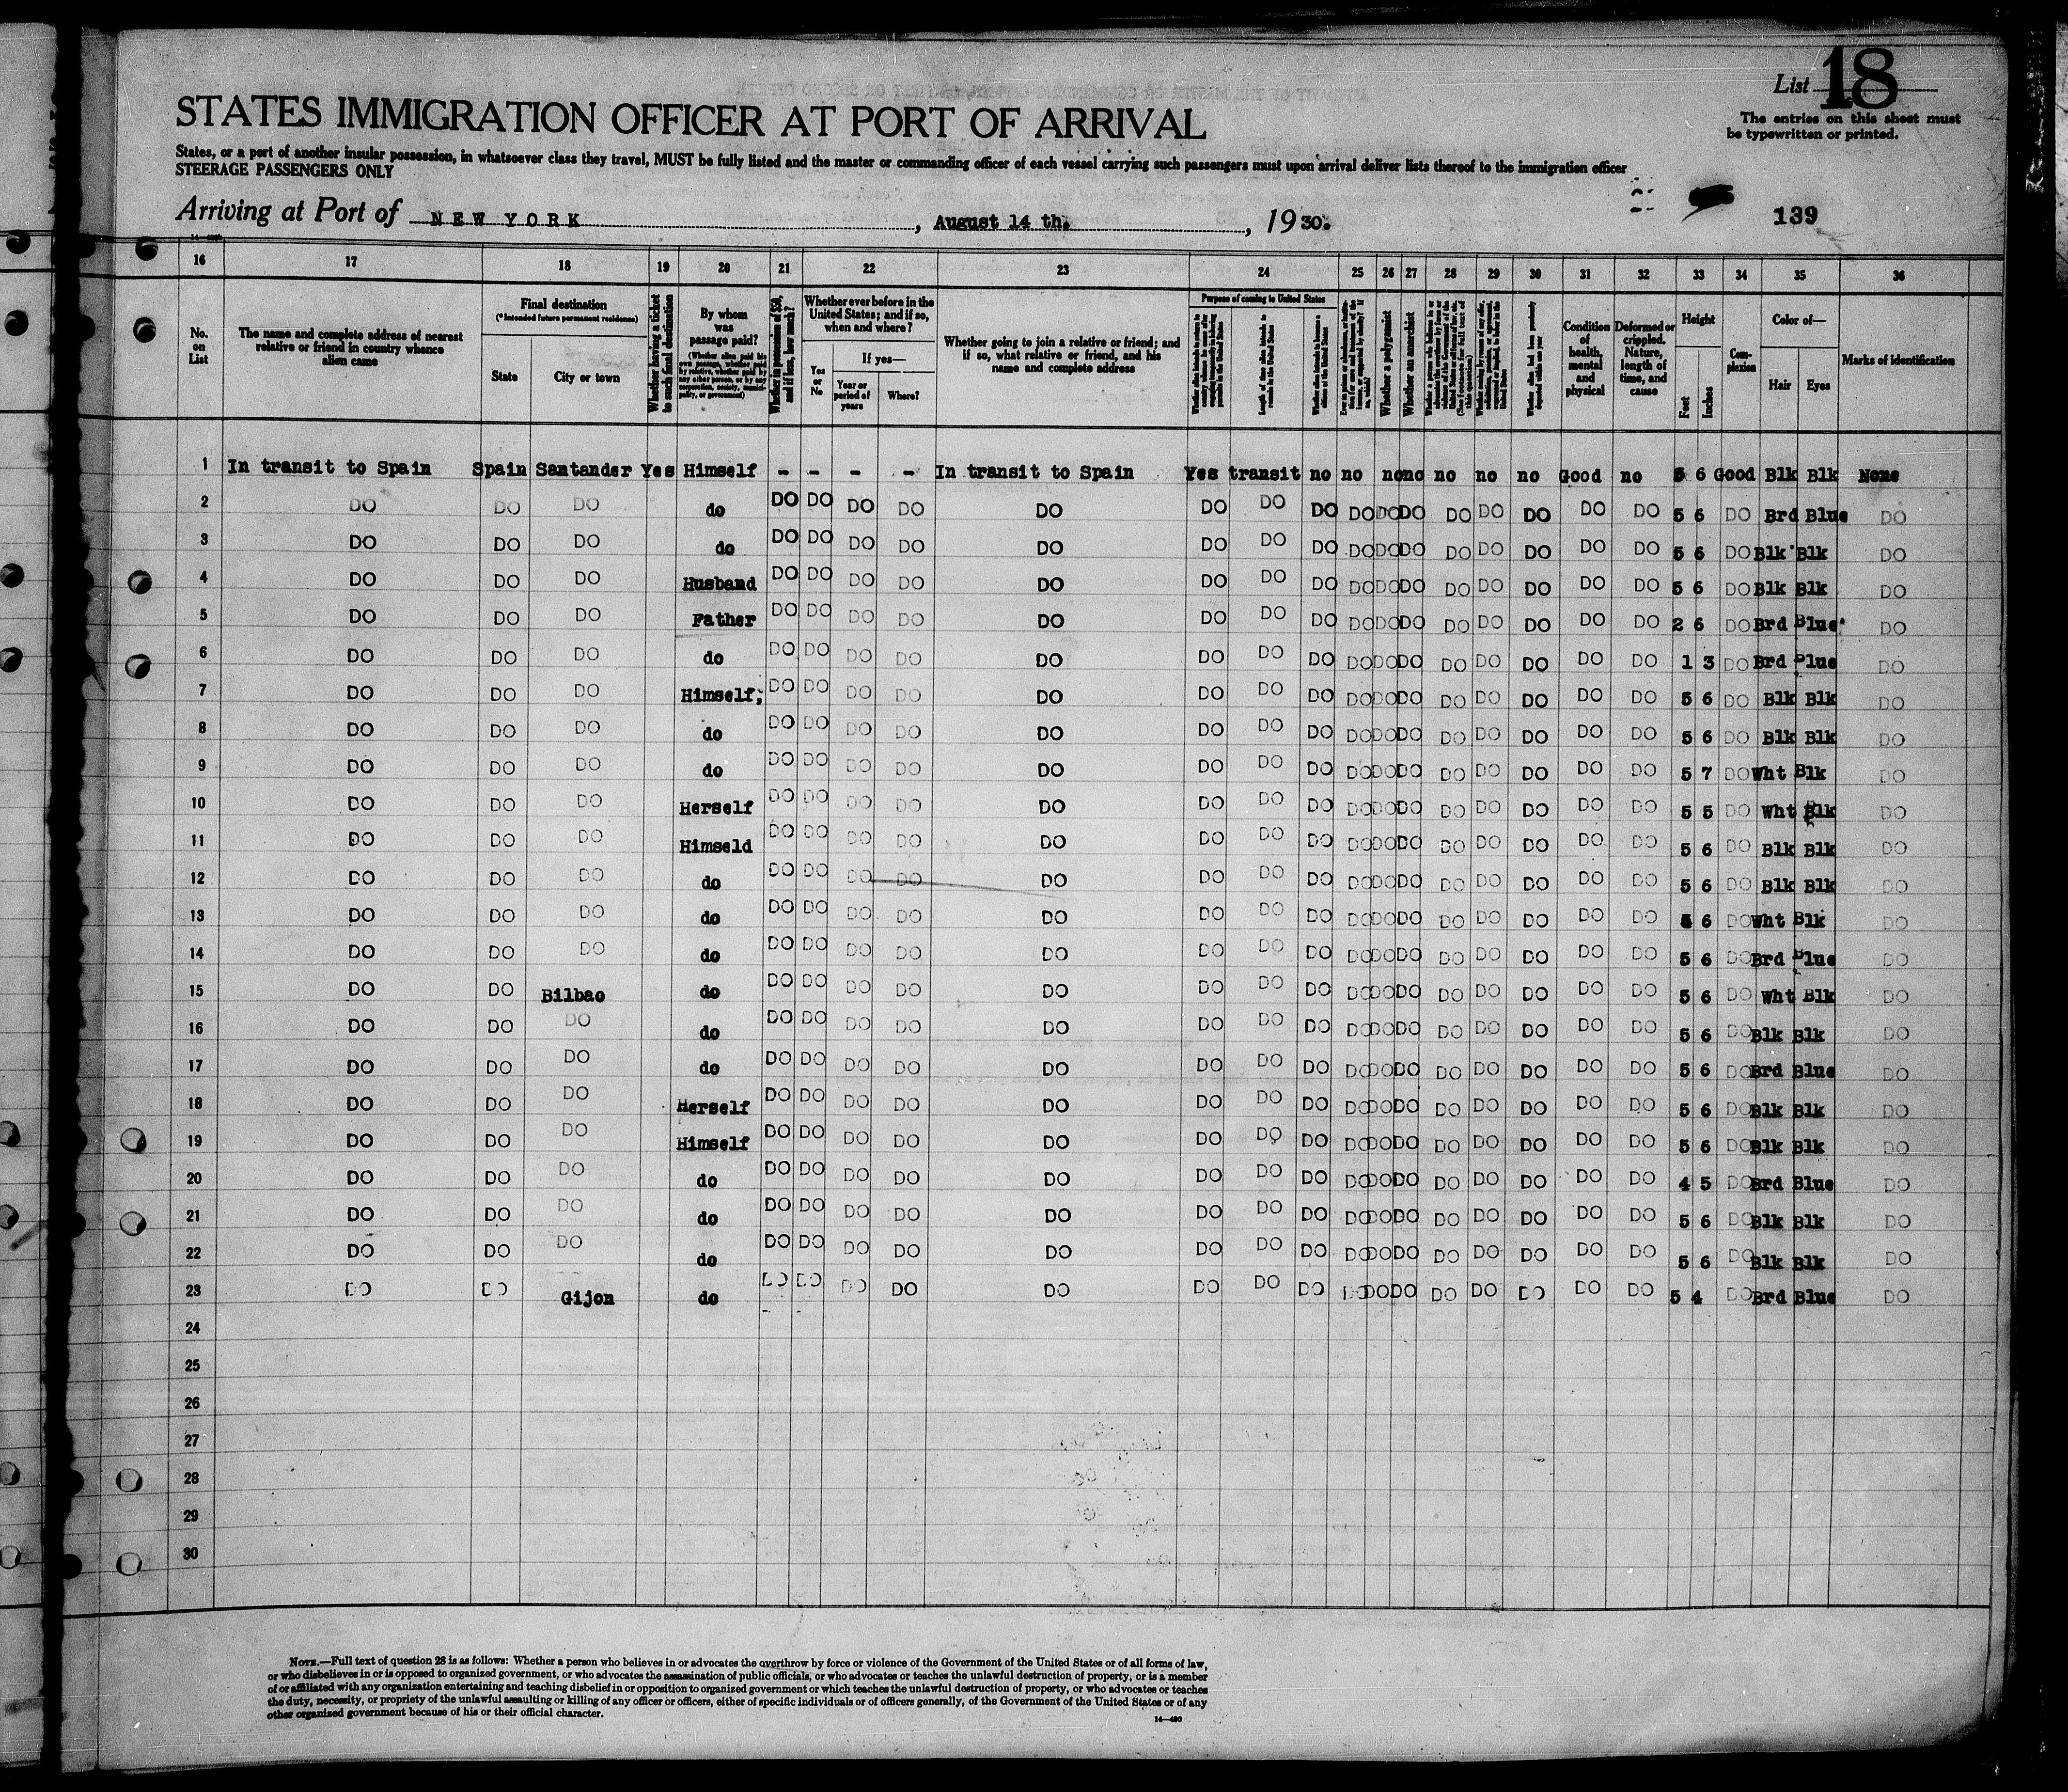 List 18
The entries on this sheet must
be typewritten or printed.
STATES IMMIGRATION OFFICER AT PORT OF ARRIVAL
States, or a port of another insular possession, in whatsoever class they travel, MUST be fully listed and the master or commanding officer of each vessel carrying such passengers must upon arrival deliver lists thereof to the immigration officer
STEERAGE PASSENGERS ONLY
Arriving at Port of NEW YORK, August 14 th., 19 30. 139
16 17 18 19 20 21 22 23 24 25 26 27 28 29 30 31 32 33 34 35 36
No. on List
The name and complete address of nearest relative or friend in country whence alien came
Final destination
(*Intended future permanent residence)
State
City or town
Whether having a ticket to such final destination
By whom was passage paid?
(Whether alien paid his own passage, whether paid by relative, whether paid by any other person, or by any corporation, society, municipality, or government)
Whether in possession of $50, and if less, how much?
Whether ever before in the United States; and if so, when and where?
Yes or No
If yes—
Year or period of years
Where?
Whether going to join a relative or friend; and if so, what relative or friend, and his name and complete address
Purpose of coming to United States
Length of time alien intends to remain in the United States
Whether alien intends to become a citizen of the United States
Whether a polygamist
Whether an anarchist
Whether alien had been previously deported within one year
Condition of health, mental and physical
Deformed or crippled. Nature, length of time, and cause
Height
Feet
Inches
Complexion
Color of—
Hair
Eyes
Marks of identification
1 In transit to Spain Spain Santander Yes Himself - - - - In transit to Spain Yes transit no no no no no no no Good no 5 6 Good Blk Blk None
2 DO DO DO do DO DO DO DO DO DO DO DO DO DO DO DO DO DO DO DO 5 6 DO Brd Blue DO
3 DO DO DO do DO DO DO DO DO DO DO DO DO DO DO DO DO DO DO DO 5 6 DO Blk Blk DO
4 DO DO DO Husband DO DO DO DO DO DO DO DO DO DO DO DO DO DO DO DO 5 6 DO Blk Blk DO
5 DO DO DO Father DO DO DO DO DO DO DO DO DO DO DO DO DO DO DO DO 2 6 DO Brd Blue DO
6 DO DO DO do DO DO DO DO DO DO DO DO DO DO DO DO DO DO DO DO 1 3 DO Brd Blue DO
7 DO DO DO Himself; DO DO DO DO DO DO DO DO DO DO DO DO DO DO DO DO 5 6 DO Blk Blk DO
8 DO DO DO do DO DO DO DO DO DO DO DO DO DO DO DO DO DO DO DO 5 6 DO Blk Blk DO
9 DO DO DO do DO DO DO DO DO DO DO DO DO DO DO DO DO DO DO DO 5 7 DO Wht Blk DO
10 DO DO DO Herself DO DO DO DO DO DO DO DO DO DO DO DO DO DO DO DO 5 5 DO Wht Blk DO
11 DO DO DO Himseld DO DO DO DO DO DO DO DO DO DO DO DO DO DO DO DO 5 6 DO Blk Blk DO
12 DO DO DO do DO DO DO DO DO DO DO DO DO DO DO DO DO DO DO DO 5 6 DO Blk Blk DO
13 DO DO DO do DO DO DO DO DO DO DO DO DO DO DO DO DO DO DO DO 5 6 DO Wht Blk DO
14 DO DO DO do DO DO DO DO DO DO DO DO DO DO DO DO DO DO DO DO 5 6 DO Brd Blue DO
15 DO DO Bilbao do DO DO DO DO DO DO DO DO DO DO DO DO DO DO DO DO 5 6 DO Wht Blk DO
16 DO DO DO do DO DO DO DO DO DO DO DO DO DO DO DO DO DO DO DO 5 6 DO Blk Blk DO
17 DO DO DO do DO DO DO DO DO DO DO DO DO DO DO DO DO DO DO DO 5 6 DO Brd Blue DO
18 DO DO DO Herself DO DO DO DO DO DO DO DO DO DO DO DO DO DO DO DO 5 6 DO Blk Blk DO
19 DO DO DO Himself DO DO DO DO DO DO DO DO DO DO DO DO DO DO DO DO 5 6 DO Blk Blk DO
20 DO DO DO do DO DO DO DO DO DO DO DO DO DO DO DO DO DO DO DO 4 5 DO Brd Blue DO
21 DO DO DO do DO DO DO DO DO DO DO DO DO DO DO DO DO DO DO DO 5 6 DO Blk Blk DO
22 DO DO DO do DO DO DO DO DO DO DO DO DO DO DO DO DO DO DO DO 5 6 DO Blk Blk DO
23 DO DO Gijon do DO DO DO DO DO DO DO DO DO DO DO DO DO DO DO DO 5 4 DO Brd Blue DO
24
25
26
27
28
29
30
NOTE.—Full text of question 28 is as follows: Whether a person who believes in or advocates the overthrow by force or violence of the Government of the United States or of all forms of law,
or who disbelieves in or is opposed to organized government, or who advocates the assassination of public officials, or who advocates or teaches the unlawful destruction of property, or is a member
of or affiliated with any organization entertaining and teaching disbelief in or opposition to organized government or which teaches the unlawful destruction of property, or who advocates or teaches
the duty, necessity, or propriety of the unlawful assaulting or killing of any officer or officers, either of specific individuals or of officers generally, of the Government of the United States or of any
other organized government because of his or their official character.
14—490